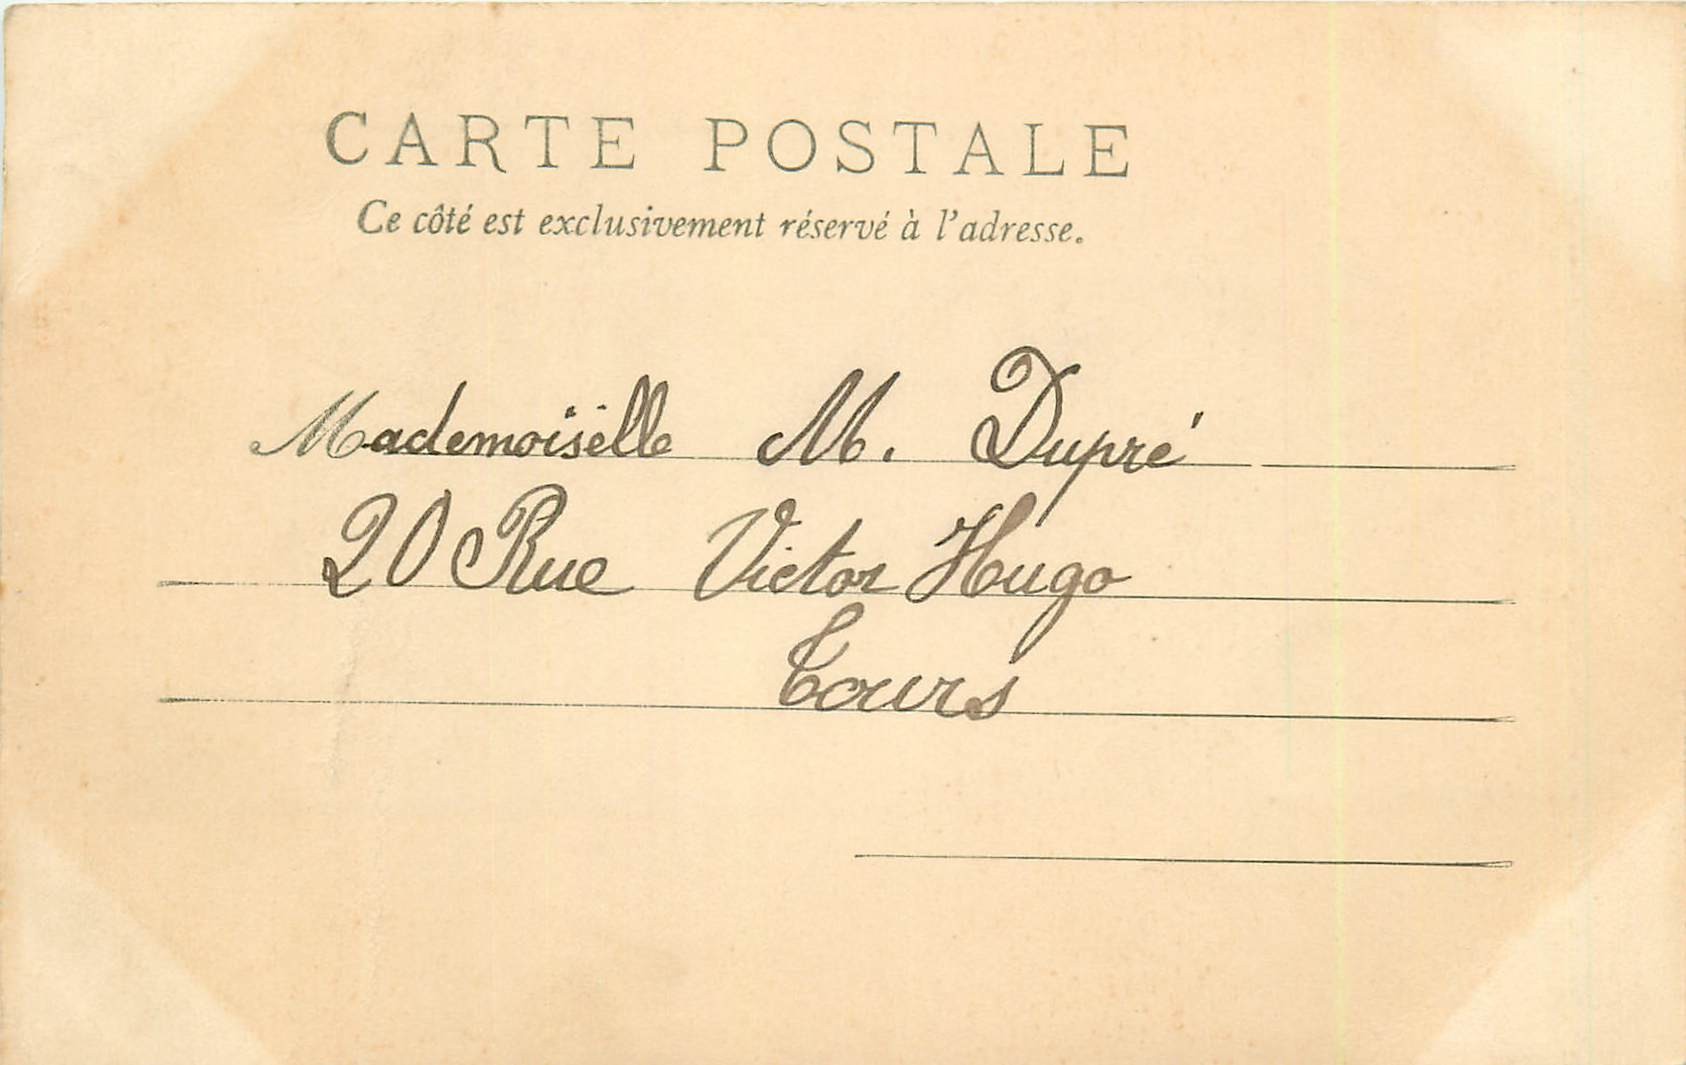 CARTE POSTALE
Ce côté est exclusivement réservé à l'adresse.
Mademoiselle M. Dupré
20 Rue Victor Hugo
Tours